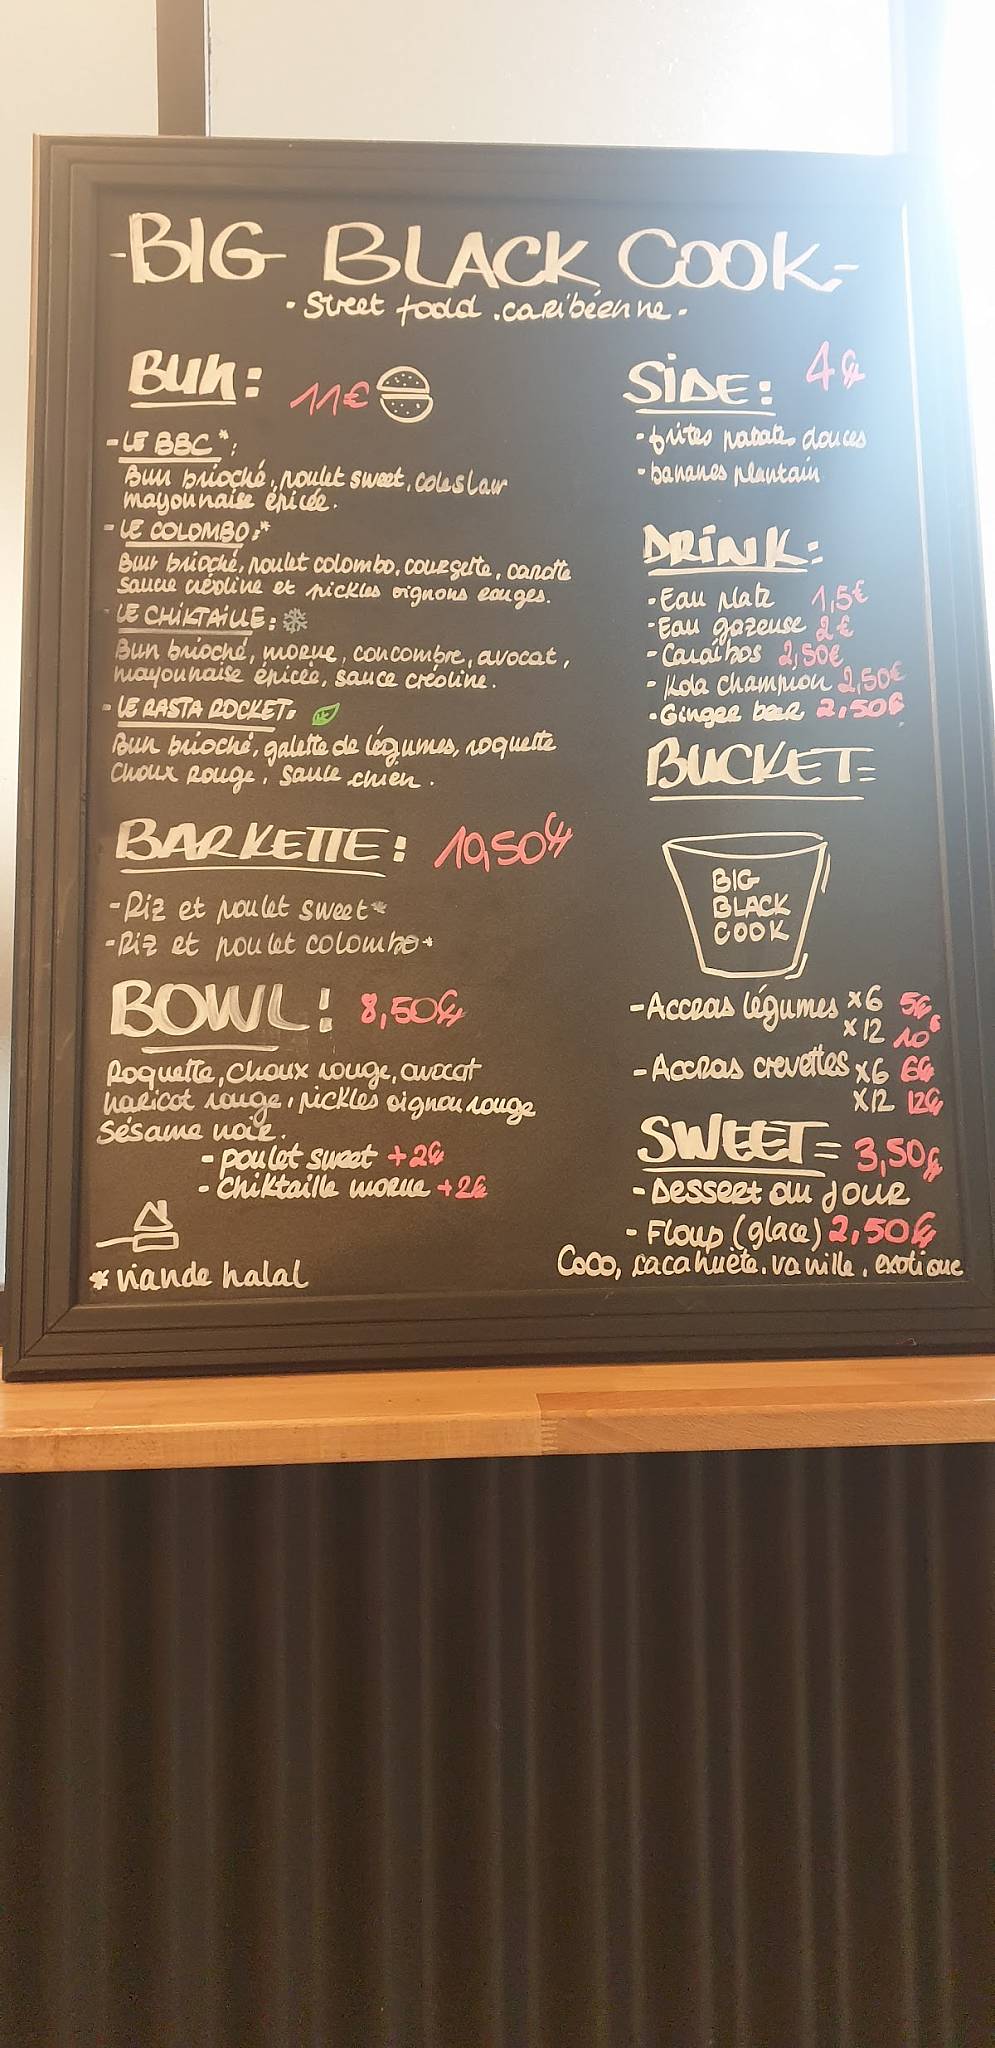 -BIG BLACK COOK-
• Street food . caribéenne •
BUN : 11€
- LE BBC * :
Bun brioché, poulet sweet, coleslaw
mayonnaise épicée.
- LE COLOMBO :*
Bun brioché, poulet colombo, courgette, carotte
sauce créoline et pickles oignons rouges.
LE CHIKTAILLE :
Bun brioché, morue, concombre, avocat,
mayonnaise épicée, sauce créoline.
- LE RASTA ROCKET:
Bun brioché, galette de légumes, roquette
choux rouge, sauce chien.
BARKETTE : 10,50€
- Riz et poulet sweet*
- Riz et poulet colombo*
BOWL : 8,50€
Roquette, choux rouge, avocat
haricot rouge, pickles oignon rouge
sésame noir.
- poulet sweet +2€
- chiktaille morue +2€
* viande halal
SIDE : 4€
- frites patates douces
- bananes plantain
DRINK :
- Eau plate 1,5€
- Eau gazeuse 2€
- Caraïbos 2,50€
- Kola champion 2,50€
- Ginger beer 2,50€
BUCKET =
BIG
BLACK
COOK
- Accras légumes x6 5€
x12 10€
- Accras crevettes x6 6€
x12 12€
SWEET = 3,50€
- Dessert du jour
- Floup (glace) 2,50€
Coco, cacahuète, vanille, exotique